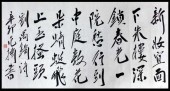 新妆宜面
下朱楼深
锁春光一
院愁行到
中庭数花
朵蜻蜓飛
上玉搔頭
刘禹锡詞